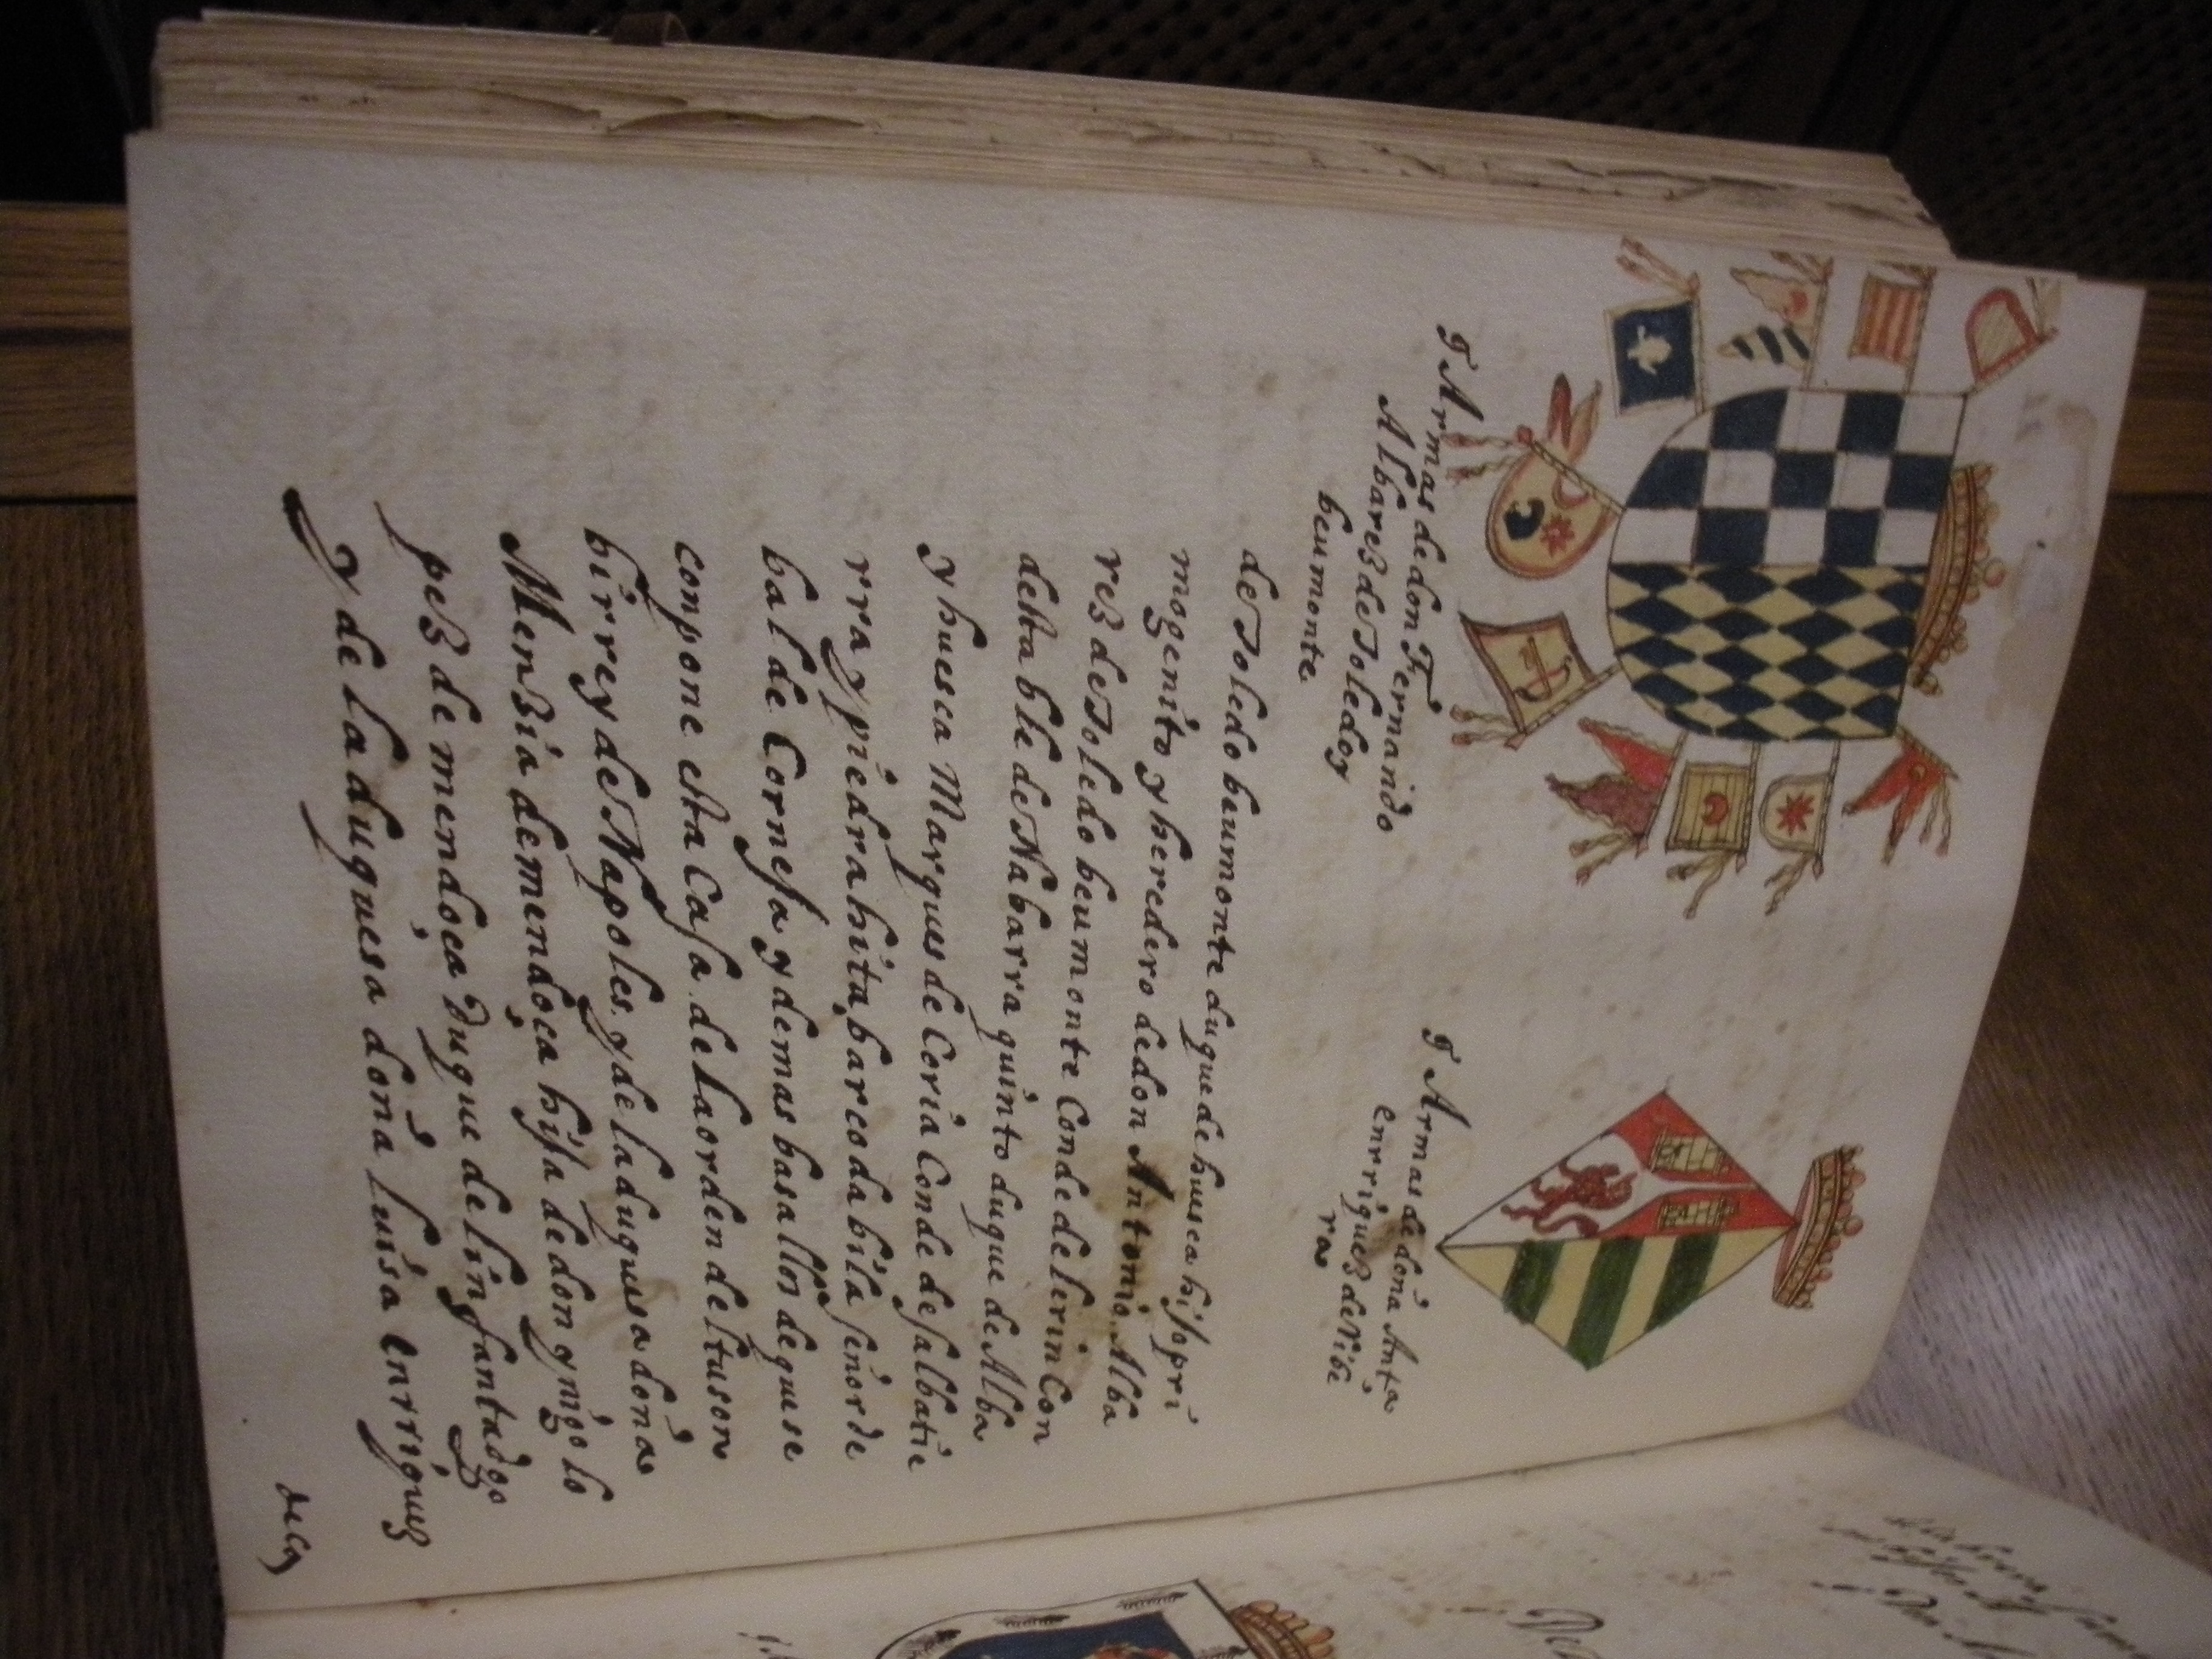 Armas de don Fernando
Albarez de Toledo y
beumonte
Armas de doña Anta
enrriquez de Ribe
ra
de Toledo beumonte duque de huesca hijo pri
mogenito y heredero de don Antonio Alba
rez de Toledo beumonte Conde de lerin Con
destable de Nabarra quinto duque de Alba
y huesca Marques de Coria Conde de salbatie
rra y piedrahita barco dabila señor de
bal de Corneja y demas basallos de que se
conpone esta Casa. de la orden del tuson
birrey de Napoles. y de la duquesa doña
Menzia de mendoça hija de don ynigo lo
pez de mendoça duque del infantadgo
y de la duquesa doña luisa enrriquez
de Ca